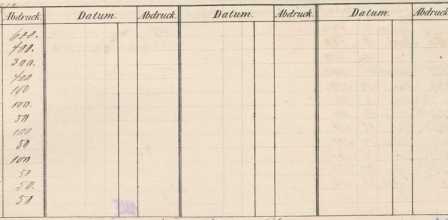 Abdruck. Datum. Abdruck. Datum. Abdruck. Datum. Abdruck.
600.
400.
300.
400
140
100.
50
100
50
100
50
50.
50